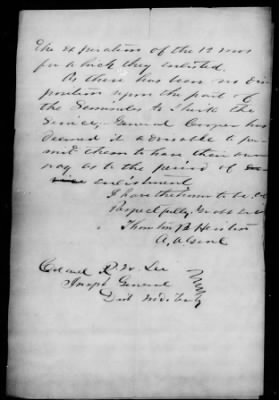 The expiration of the 12 mos
for which they enlisted.
As there has been no dis
position upon the part of
the Seminoles to shirk the
service, General Cooper has
deemed it advisable to per
mit them to have their own
way as to the period of
enlistment
I have the honor to be, Col
Respectfully, Yr obt svt
A. A. Genl
Colonel R. W. Lee
Insp General
Dist Ind Ter